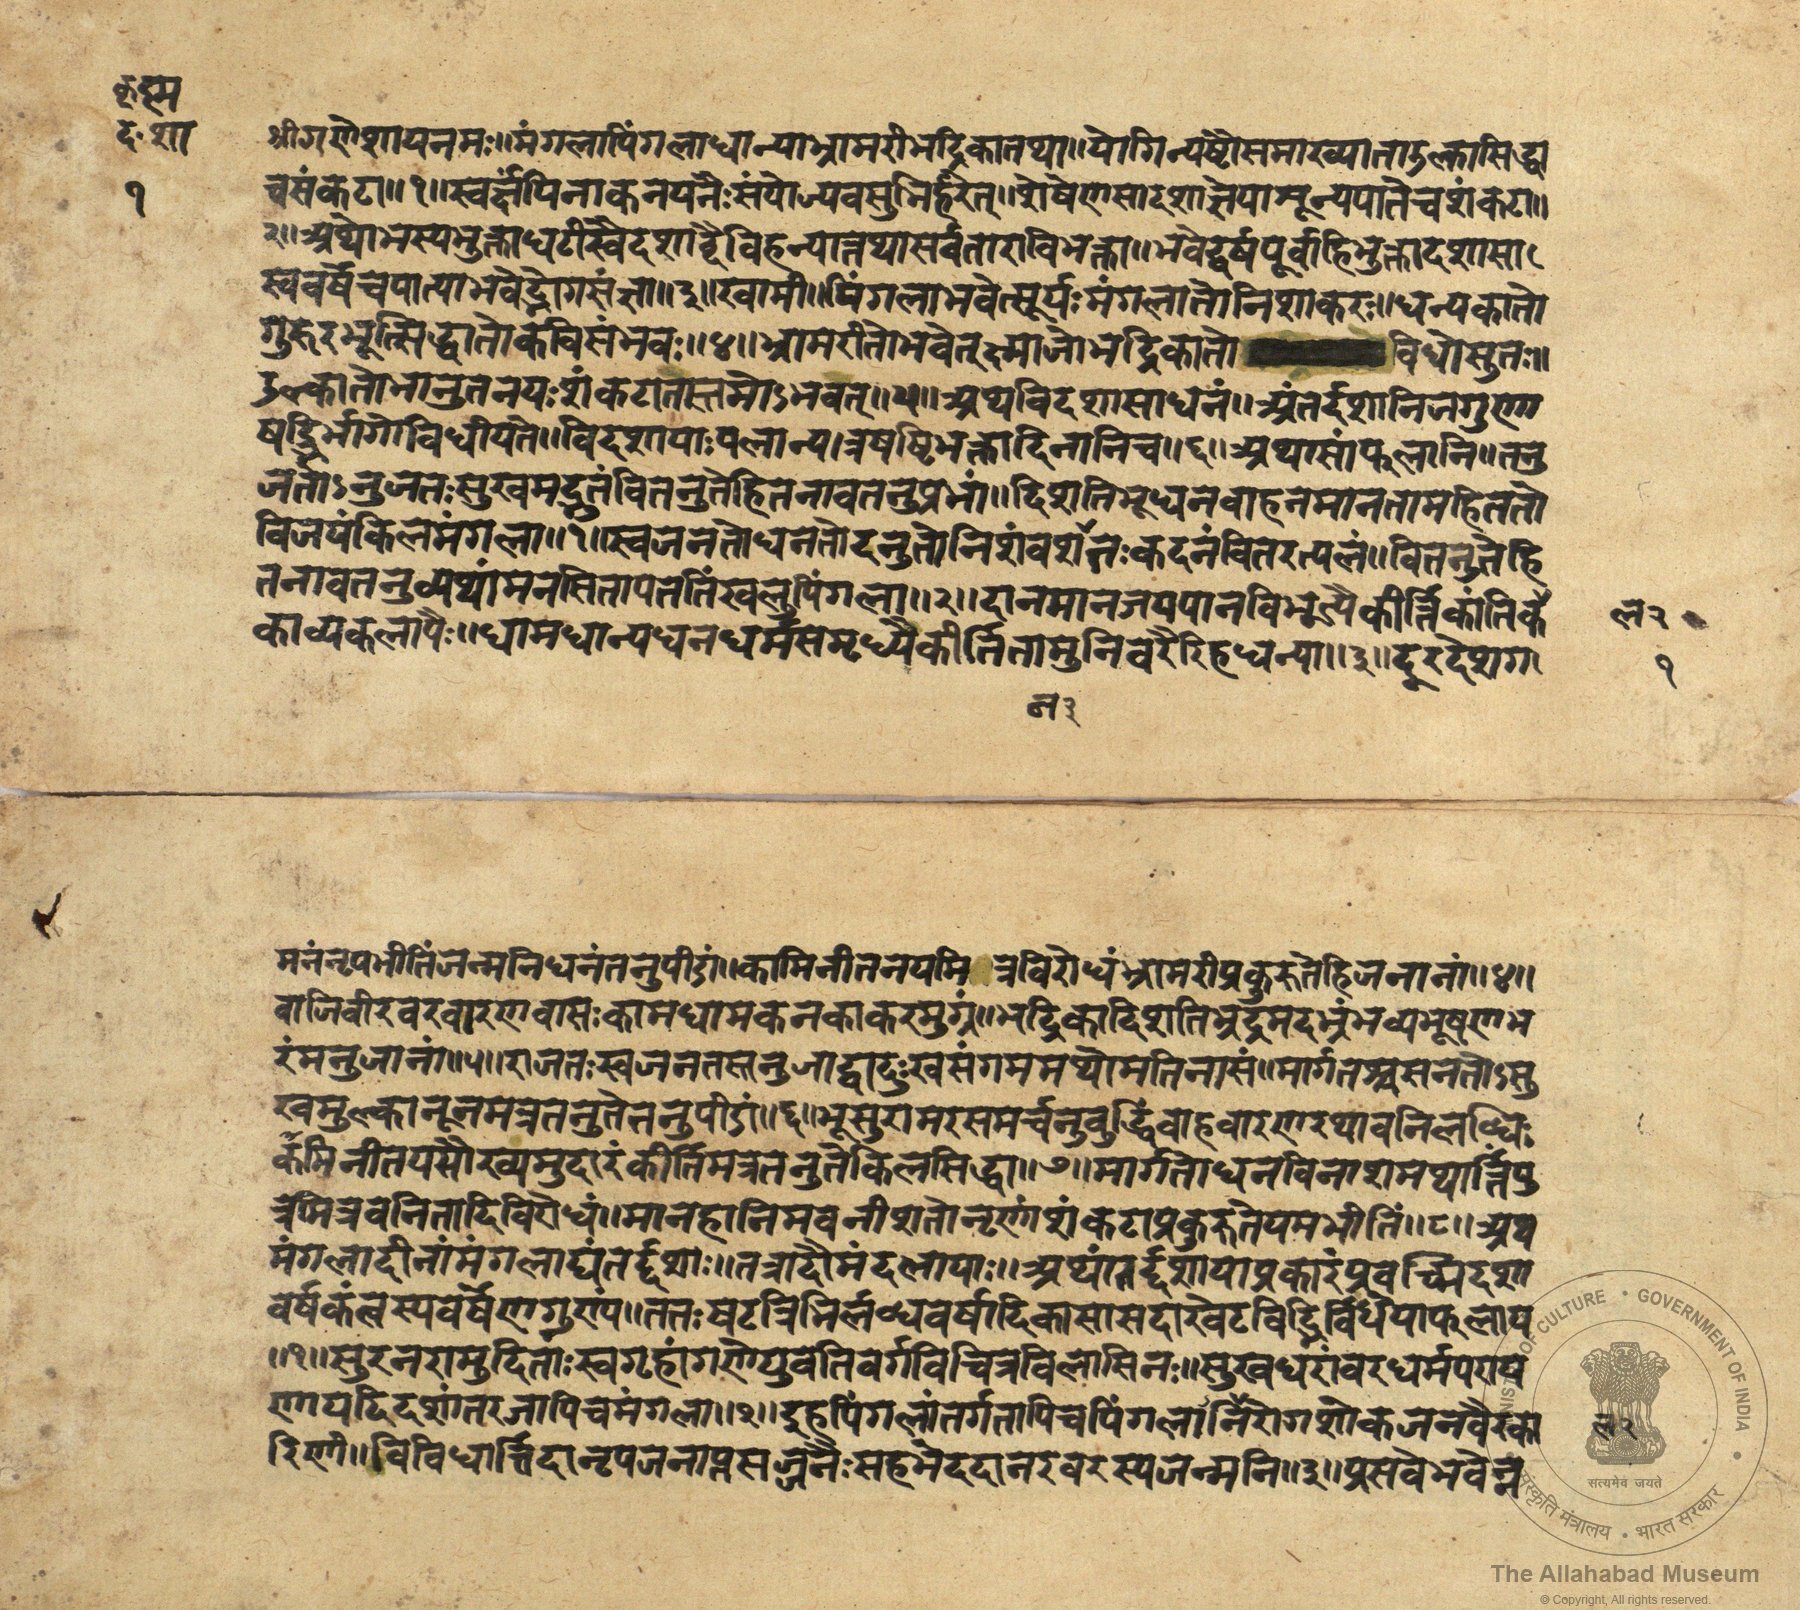 कृष्म
दःशा
१
श्रीगणेशायनमः॥मंगलापिंगलाधान्याभ्रामरीभद्रिकातथा॥योगिन्यष्टौसमाख्याताउल्कासिद्धा
चसंकटा॥१॥स्वर्क्षंपिनाकनयनैःसंयोज्यवसुभिर्हरेत्॥शेषेणसादशाज्ञेयाशून्यपातेचशंकटा॥
२॥अथोभस्यभुक्ताघटीस्वैदशाब्दैविहन्यात्तथासर्वताराविभक्ता॥भवेद्वर्षपूर्वाहिभुक्तादशासा
स्ववर्षेचपात्याभवेद्भोगसंज्ञा॥३॥स्वामी॥पिंगलाभवेत्सूर्यःमंगलातोनिशाकरः॥धन्यकातो
गुरूरभूत्सिद्धातोकविसंभवः॥४॥भ्रामरीतोभवेत्क्ष्माजोभद्रिकातो विधोसुतः॥
उल्कातोभानुतनयःशंकटातस्तमोऽभवत्॥५॥अथविदशासाधनं॥अंतर्दशानिजगुण
षड्भिर्भागोविधीयते॥विदशायाःपलान्यत्रषष्टिभक्तोदिनानिच॥६॥अथासांफलानि॥तनु
जतोऽनुजतःसुखमद्भुतंवितनुतेहितनावतनुप्रभां॥दिशतिभूधनवाहनमानतामहिततो
विजयंकिलमंगला॥१॥स्वजनतोधनतोदनुतोनिशंवशनःकदनंवितरत्यलं॥वितनुतेहि
तनावतनुव्यथांमनसितापततिंखलुपिंगला॥२॥दानमानजयपानविभूत्यैकीर्त्तिकांतिकै
काव्यकलापैः॥धामधान्यधनधर्मसमृध्यैकीर्तितामुनिवरैरिहधन्या॥३॥दूरदेशग
न२
१
न३
मनंनृपभीतिंजन्मनिधनंतनुपीडां॥कामिनीतनयमि त्रविरोधंभ्रामरीप्रकुरूतेहिजनानां॥४॥
वाजिवीरवरवारणवासःकामधामकनकाकरमुग्रं॥भद्रिकादिशतिभद्रमदभ्रंभव्यभूषणभ
रंमनुजानां॥५॥राजतःस्वजनतस्तनुजाद्वादुःखसंगममथोमतिनासं॥मार्गतश्वसनतोऽसु
खमुल्कानूनमत्रतनुतेतनुपीडां॥६॥भूसुरामरसमर्चनुबुद्धिंवाहवारणरथावनिलब्धिः
कामिनीतयसौख्यमुदारंकीर्तिमत्रतनुतेकिलसिद्धा॥७॥मार्गतोधनविनाशमथार्त्तिंपु
त्रमित्रवनितादिविरोधं॥मानहानिमवनीशतोनृणांशंकटाप्रकुरूतेयमभीतिं॥८॥अथ
मंगलादीनांमंगलाद्यंतर्द्दशाः॥तत्रादौमंदलायाः॥अथांतर्द्दशायाप्रकारंप्रवच्मिदशा
वर्षकंतस्यवर्षेणगुण्यं॥ततःषटत्रिभिर्लब्धवर्षादिकासासदाखेटविद्भिर्विधेयाफलाय
॥१॥सुरनरामुदिताःस्वगृहांगणेयुवतिवर्गविचित्रविलासिनः॥सुखधरांवरधर्मपराषे
णयदिदशांतरजापिचमंगला॥२॥इहपिंगलांतर्गतापिचपिंगलार्निरोगशोकजनवैरका
न२
रिणी॥विविधार्त्तिदानृपजनाप्तसज्जनैःसहभेददानरवरस्यजन्मनि॥३॥प्रसवेभवेन्न
MINISTRY OF CULTURE • GOVERNMENT OF INDIA
सत्यमेव जयते
संस्कृति मंत्रालय • भारत सरकार
The Allahabad Museum
© Copyright, All rights reserved.